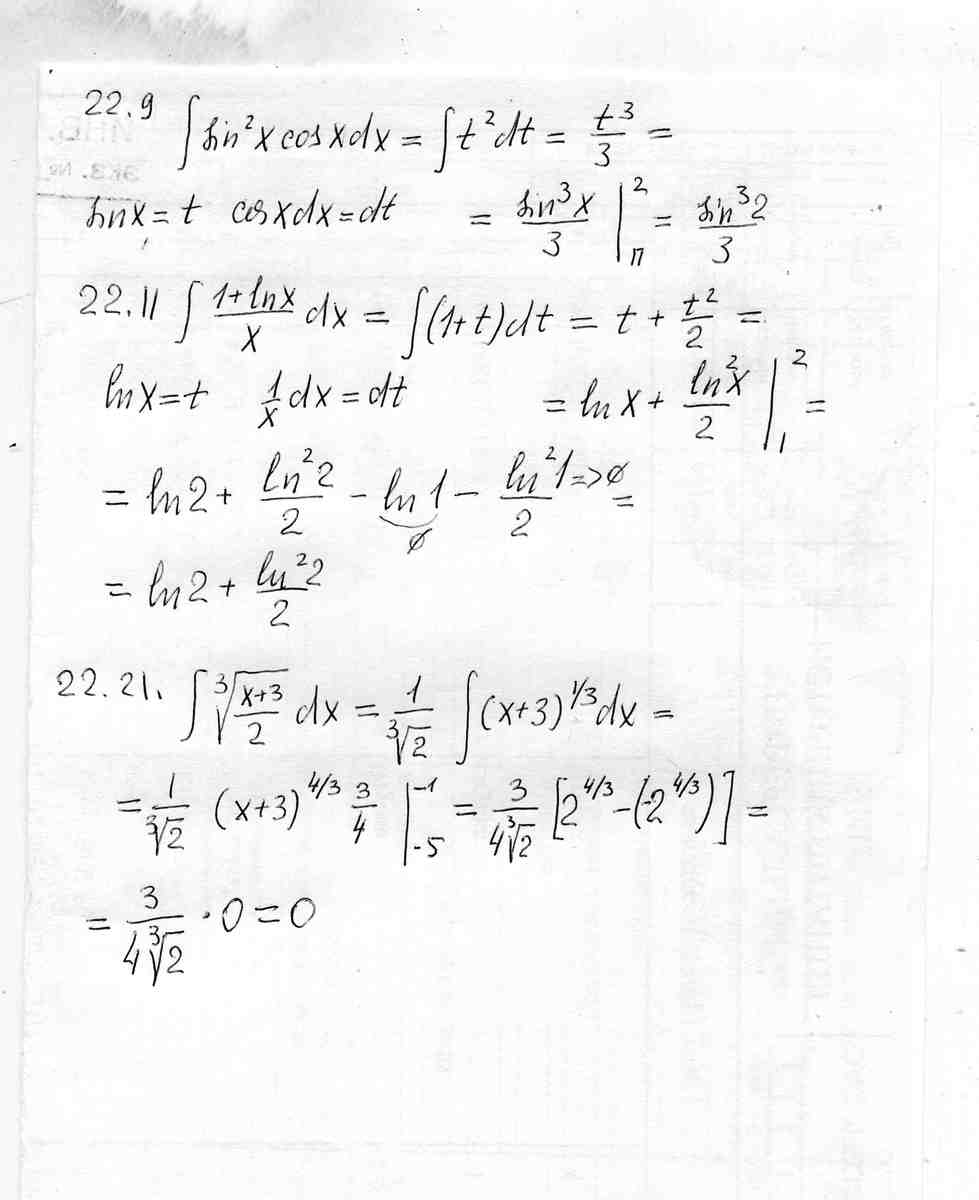 22.9 ∫sin²x cosxdx = ∫t²dt = t³/3 =
sinx=t cosxdx=dt = sin³x/3 |²_π = sin³2/3
22.11 ∫ (1+lnx)/x dx = ∫(1+t)dt = t + t²/2 =
lnx=t 1/x dx=dt = lnx + ln²x/2 |²₁ =
= ln2 + ln²2/2 - ln1 - ln²1/2 => ∅ =
∅
= ln2 + ln²2/2
22.21. ∫ ³√((x+3)/2) dx = 1/³√2 ∫(x+3)^(1/3) dx =
= 1/³√2 (x+3)^(4/3) 3/4 |^(-1)_(-5) = 3/(4³√2) [2^(4/3) - (-2^(4/3))] =
= 3/(4³√2) · 0 = 0
ИНВ.
ЭКЗ. №